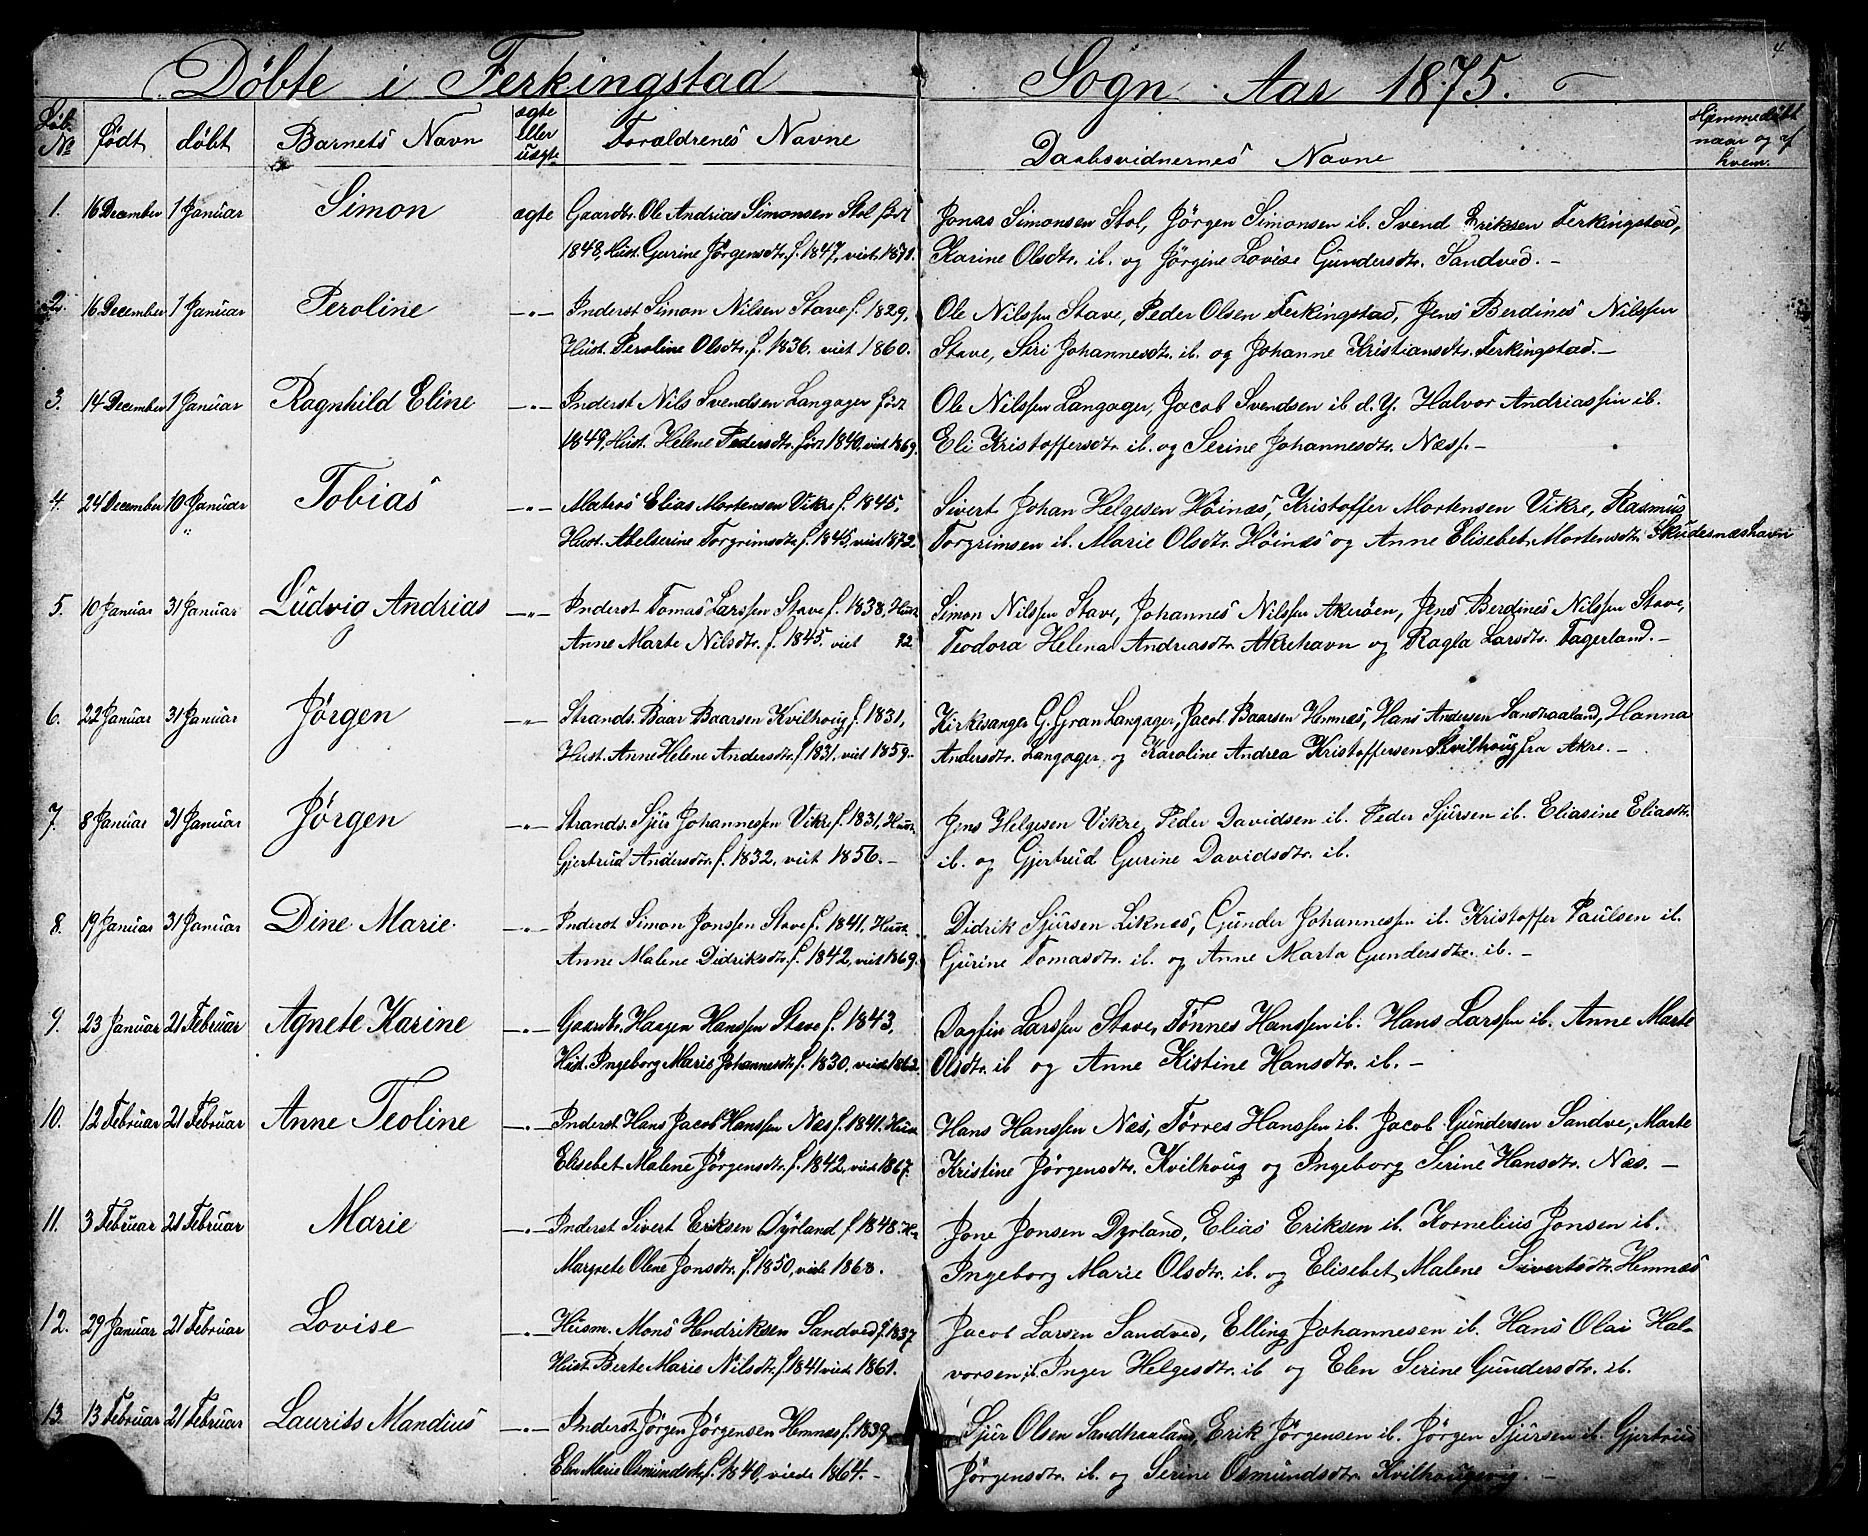 4
Døbte i Ferkingstad Sogn Aar 1875.
Løb. No | født | døbt | Barnets Navn | ægte eller uægte | Forældrenes Navne | Daabsvidnernes Navne | Hjemmedøbt naar og af hvem.
1. 16 December 1 Januar Simon ægte Gaardbr. Ole Andrias Simonsen Stol født Jonas Simonsen Stol, Jørgen Simonsen ib. Svend Eriksen Ferkingstad,
1848, Hust. Gurine Jørgensdtr. f. 1847, viet 1871. Karine Olsdtr. ib. og Jørgine Lovise Gundersdtr. Sandved. –
2. 16 December 1 Januar Peroline –"– Inderst Simon Nilsen Stave f. 1829, Ole Nilssen Stave, Peder Olsen Ferkingstad, Jens Berdines Nilssen
Hust. Peroline Olsdtr. f. 1836. viet 1860. Stave, Siri Johannesdtr. ib. og Johanne Kristiansdtr. Ferkingstad. –
3. 14 December 1 Januar Ragnhild Eline –"– Inderst Nils Svendsen Langager født Ole Nilssen Langager, Jacob Svendsen ib d. Y. Halvor Andriassen ib.
1849, Hust. Helene Pedersdtr. født 1840, viet 1869. Eli Kristoffersdtr. ib. og Serine Johannesdtr. Næss. –
4. 24 December 10 Januar Tobias –"– Matros Elias Mortensen Vikre f. 1845, Sivert Johan Helgesen Høinæs, Kristoffer Mortensen Vikre, Rasmus
" Hust. Abelserine Torgrimsdtr f. 1845, viet 1872. Torgrimsen ib. Marie Olsdtr. Høinæs og Anne Elisebet Mortensdtr. Skudesnæshavn
5. 10 Januar 31 Januar Ludvig Andrias –"– Inderst Tomas Larssen Stave f. 1838, Hust. Simon Nilssen Stave, Johannes Nilssen Akrøen, Jens Berdines Nilssen Stave,
Anne Marte Nilsdtr. f. 1845. viet 72. Teodora Helena Andreasdtr. Akrehavn og Ragla Larsdtr. Fagerland. –
6. 22 Januar 31 Januar Jørgen –"– Strands. Baar Baarsen Kvilhoug f. 1831, Kirkesanger G. Gran Langager, Jacob Baarsen Hemnæs, Hans Andersen Sandhaaland, Hanna
Hust. Anne Helene Andersdtr. f. 1831, viet 1859. – Andersdtr. Langager og Karoline Andrea Kristoffersen Kvilhoug fra Akre. –
7. 8 Januar 31 Januar Jørgen –"– Strands. Sjur Johannessen Vikre f. 1831, Hust. Jens Helgesen Vikre, Peder Davidsen ib. Peder Sjursen ib. Eliasine Eliasdtr.
Gjertrud Andersdtr. f. 1832, viet 1856. – ib. og Gjertrud Gurine Davidsdtr. ib.
8. 19 Januar 31 Januar Dine Marie –"– Inderst Simon Jonssen Stave f. 1841, Hust. Didrik Sjursen Liknæs, Gunder Johannessen ib. Kristoffer Paulsen ib.
Anne Malene Didriksdtr. f. 1842, viet 1869. Gjurine Tomasdtr. ib. og Anne Marta Gundersdtr. ib. –
9. 23 Januar 21 Februar Agnete Karine –"– Gaardbr. Haagen Hanssen Stave f. 1843, Dagfin Larssen Stave, Tønnes Hanssen ib. Hans Larssen ib. Anne Marte
Hust. Ingeborg Marie Johannesdtr f. 1830, viet 1862. Olsdtr. ib og Anne Kistine Hansdtr. ib. –
10. 12 Februar 21 Februar Anne Teoline –"– Inderst Hans Jacob Hanssen Næs f. 1841. Hust. Hans Hanssen Næs, Tørres Hanssen ib. Jacob Gundersen Sandve, Marte
Elisebet Malene Jørgensdtr. f. 1842, viet 1867. Kristine Jørgensdtr. Kvilhoug og Ingeborg Serine Hansdtr. Næs. –
11. 3 Februar 21 Februar Marie –"– Inderst Sivert Eriksen Dyrland f. 1848. H. Jone Jonsen Dyrland, Elias Eriksen ib. Kornelius Jonsen ib.
Margrete Olene Jonsdtr. f. 1850, viet 1868. Ingeborg Marie Olsdtr. ib. og Elisebet Malene Sivertsdtr. Hemnæs
12. 29 Januar 21 Februar Lovise –"– Husm. Mons Hendriksen Sandved f. 1837 Jacob Larsen Sandved, Elling Johannesen ib. Hans Olai Hal-
Hust. Berte Marie Nilsdtr. f. 1841 viet 1861. vorsen ib. Inger Helgesdtr. ib og Elen Serine Gundersdtr. ib.
13. 13 Februar 21 Februar Laurits Mandius –"– Inderst Jørgen Jørgensen Hemnæs f. 1839 Sjur Olsen Sandhaaland, Erik Jørgensen ib. Jørgen Sjursen ib. Gjertrud
Elen Marie Osmundsdtr. f. 1840, viede 1864. – Jørgensdtr. ib. og Serine Osmundsdtr. Kvilhougvig. –